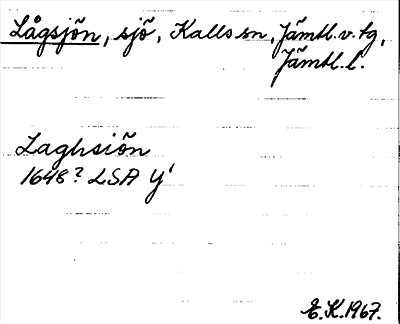 Lågsjön, sjö, Kalls sn, Jämtl. v. tg,
Jämtl. l.
Laghsiön
1648? LSA Y'
E.K. 1967.